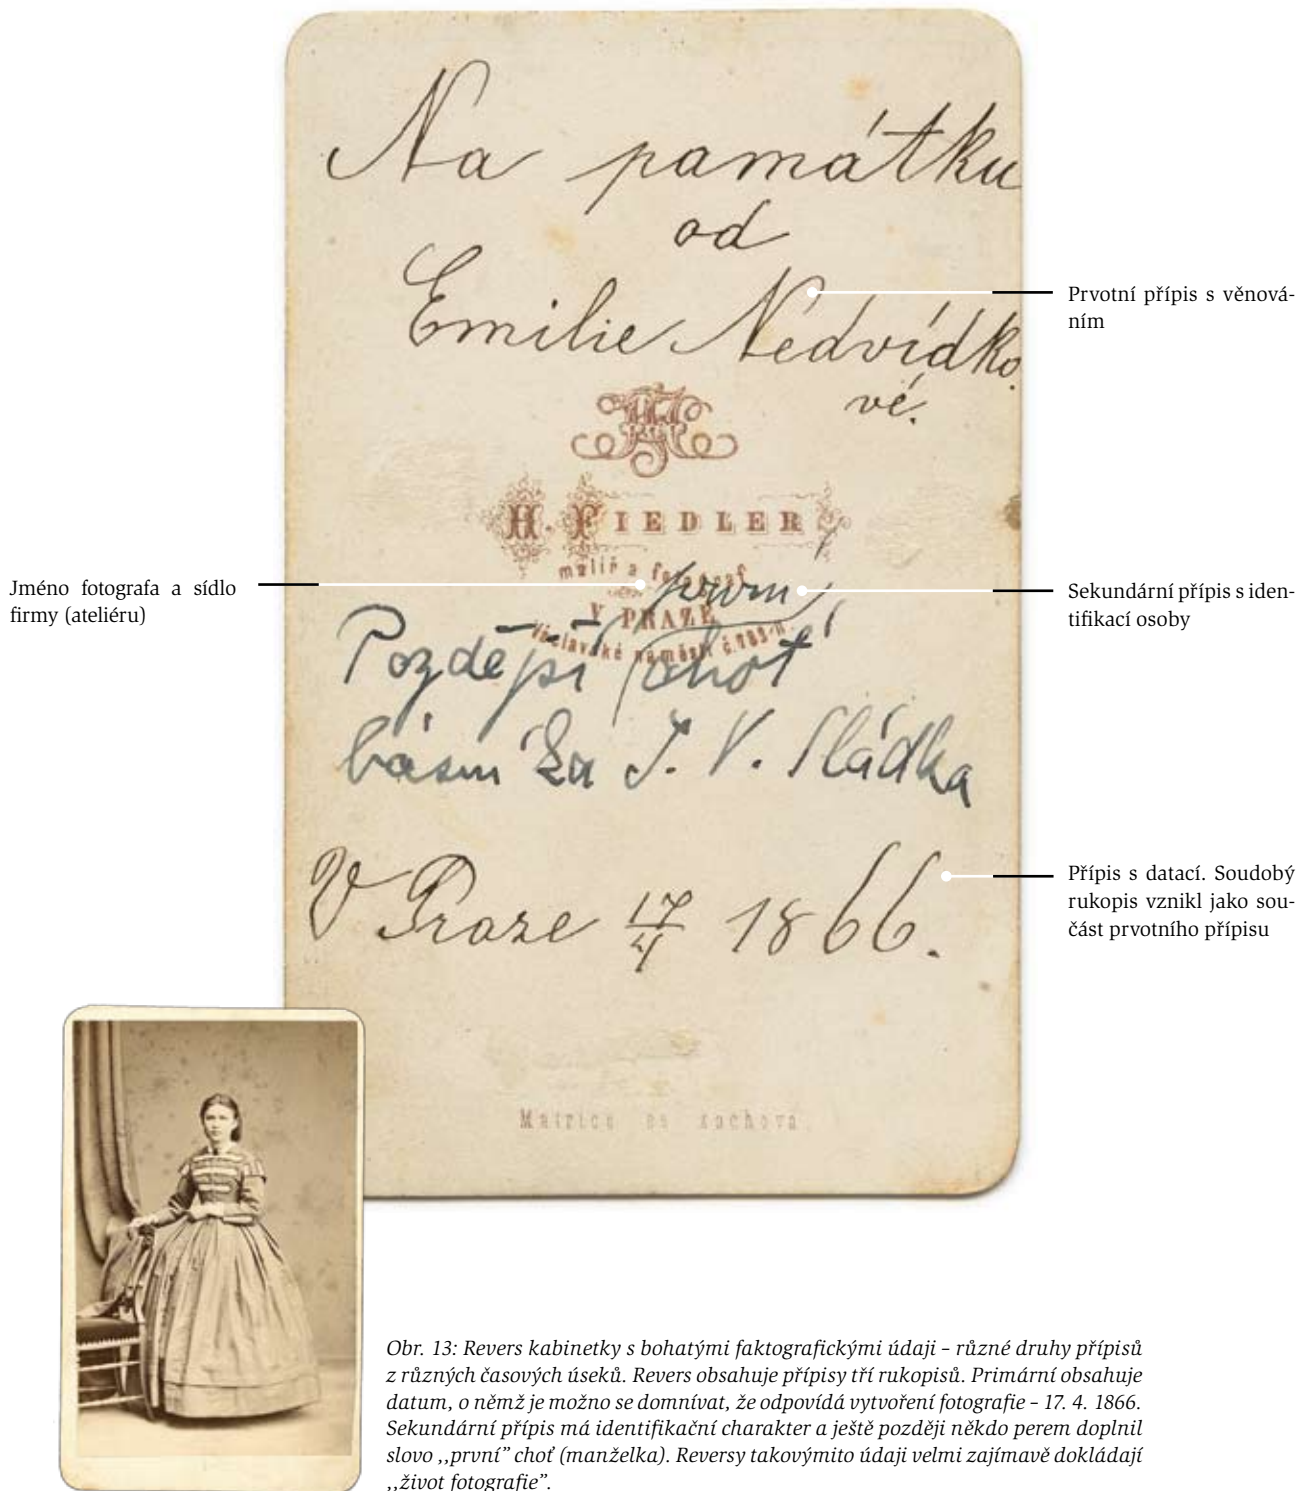 Na památku
od
Emilie Nedvídko
vé.
H. FIEDLER
malíř a fotograf
V PRAZE
Václavské náměstí
první
Pozdější choť
básníka J. V. Sládka
V Praze 17/4 1866.
Matrice se zachová.
Prvotní přípis s věnová-
ním
Jméno fotografa a sídlo
firmy (ateliéru)
Sekundární přípis s iden-
tifikací osoby
Přípis s datací. Soudobý
rukopis vznikl jako sou-
část prvotního přípisu
Obr. 13: Revers kabinetky s bohatými faktografickými údaji – různé druhy přípisů
z různých časových úseků. Revers obsahuje přípisy tří rukopisů. Primární obsahuje
datum, o němž je možno se domnívat, že odpovídá vytvoření fotografie – 17. 4. 1866.
Sekundární přípis má identifikační charakter a ještě později někdo perem doplnil
slovo ,,první” choť (manželka). Reversy takovýmito údaji velmi zajímavě dokládají
,,život fotografie”.